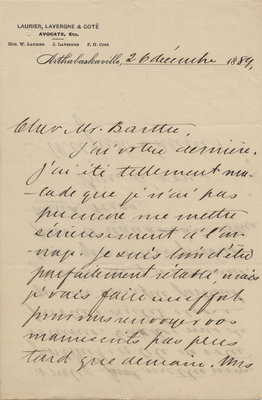 LAURIER, LAVERGNE & COTÉ
AVOCATS, Etc.
Hon. W. Laurier J. Lavergne P. H. Coté
Arthabaskaville, 26 décembre 1889,
Cher Mr. Barthe,
J'ai votre dernière.
J'ai été tellement ma-
lade que je n'ai pas
pu encore me mettre
sérieusement à l'ou-
vrage. Je suis loin d'être
parfaitement rétabli mais
je vais faire un effort
pour vous renvoyer vos
manuscrits pas plus
tard que demain.